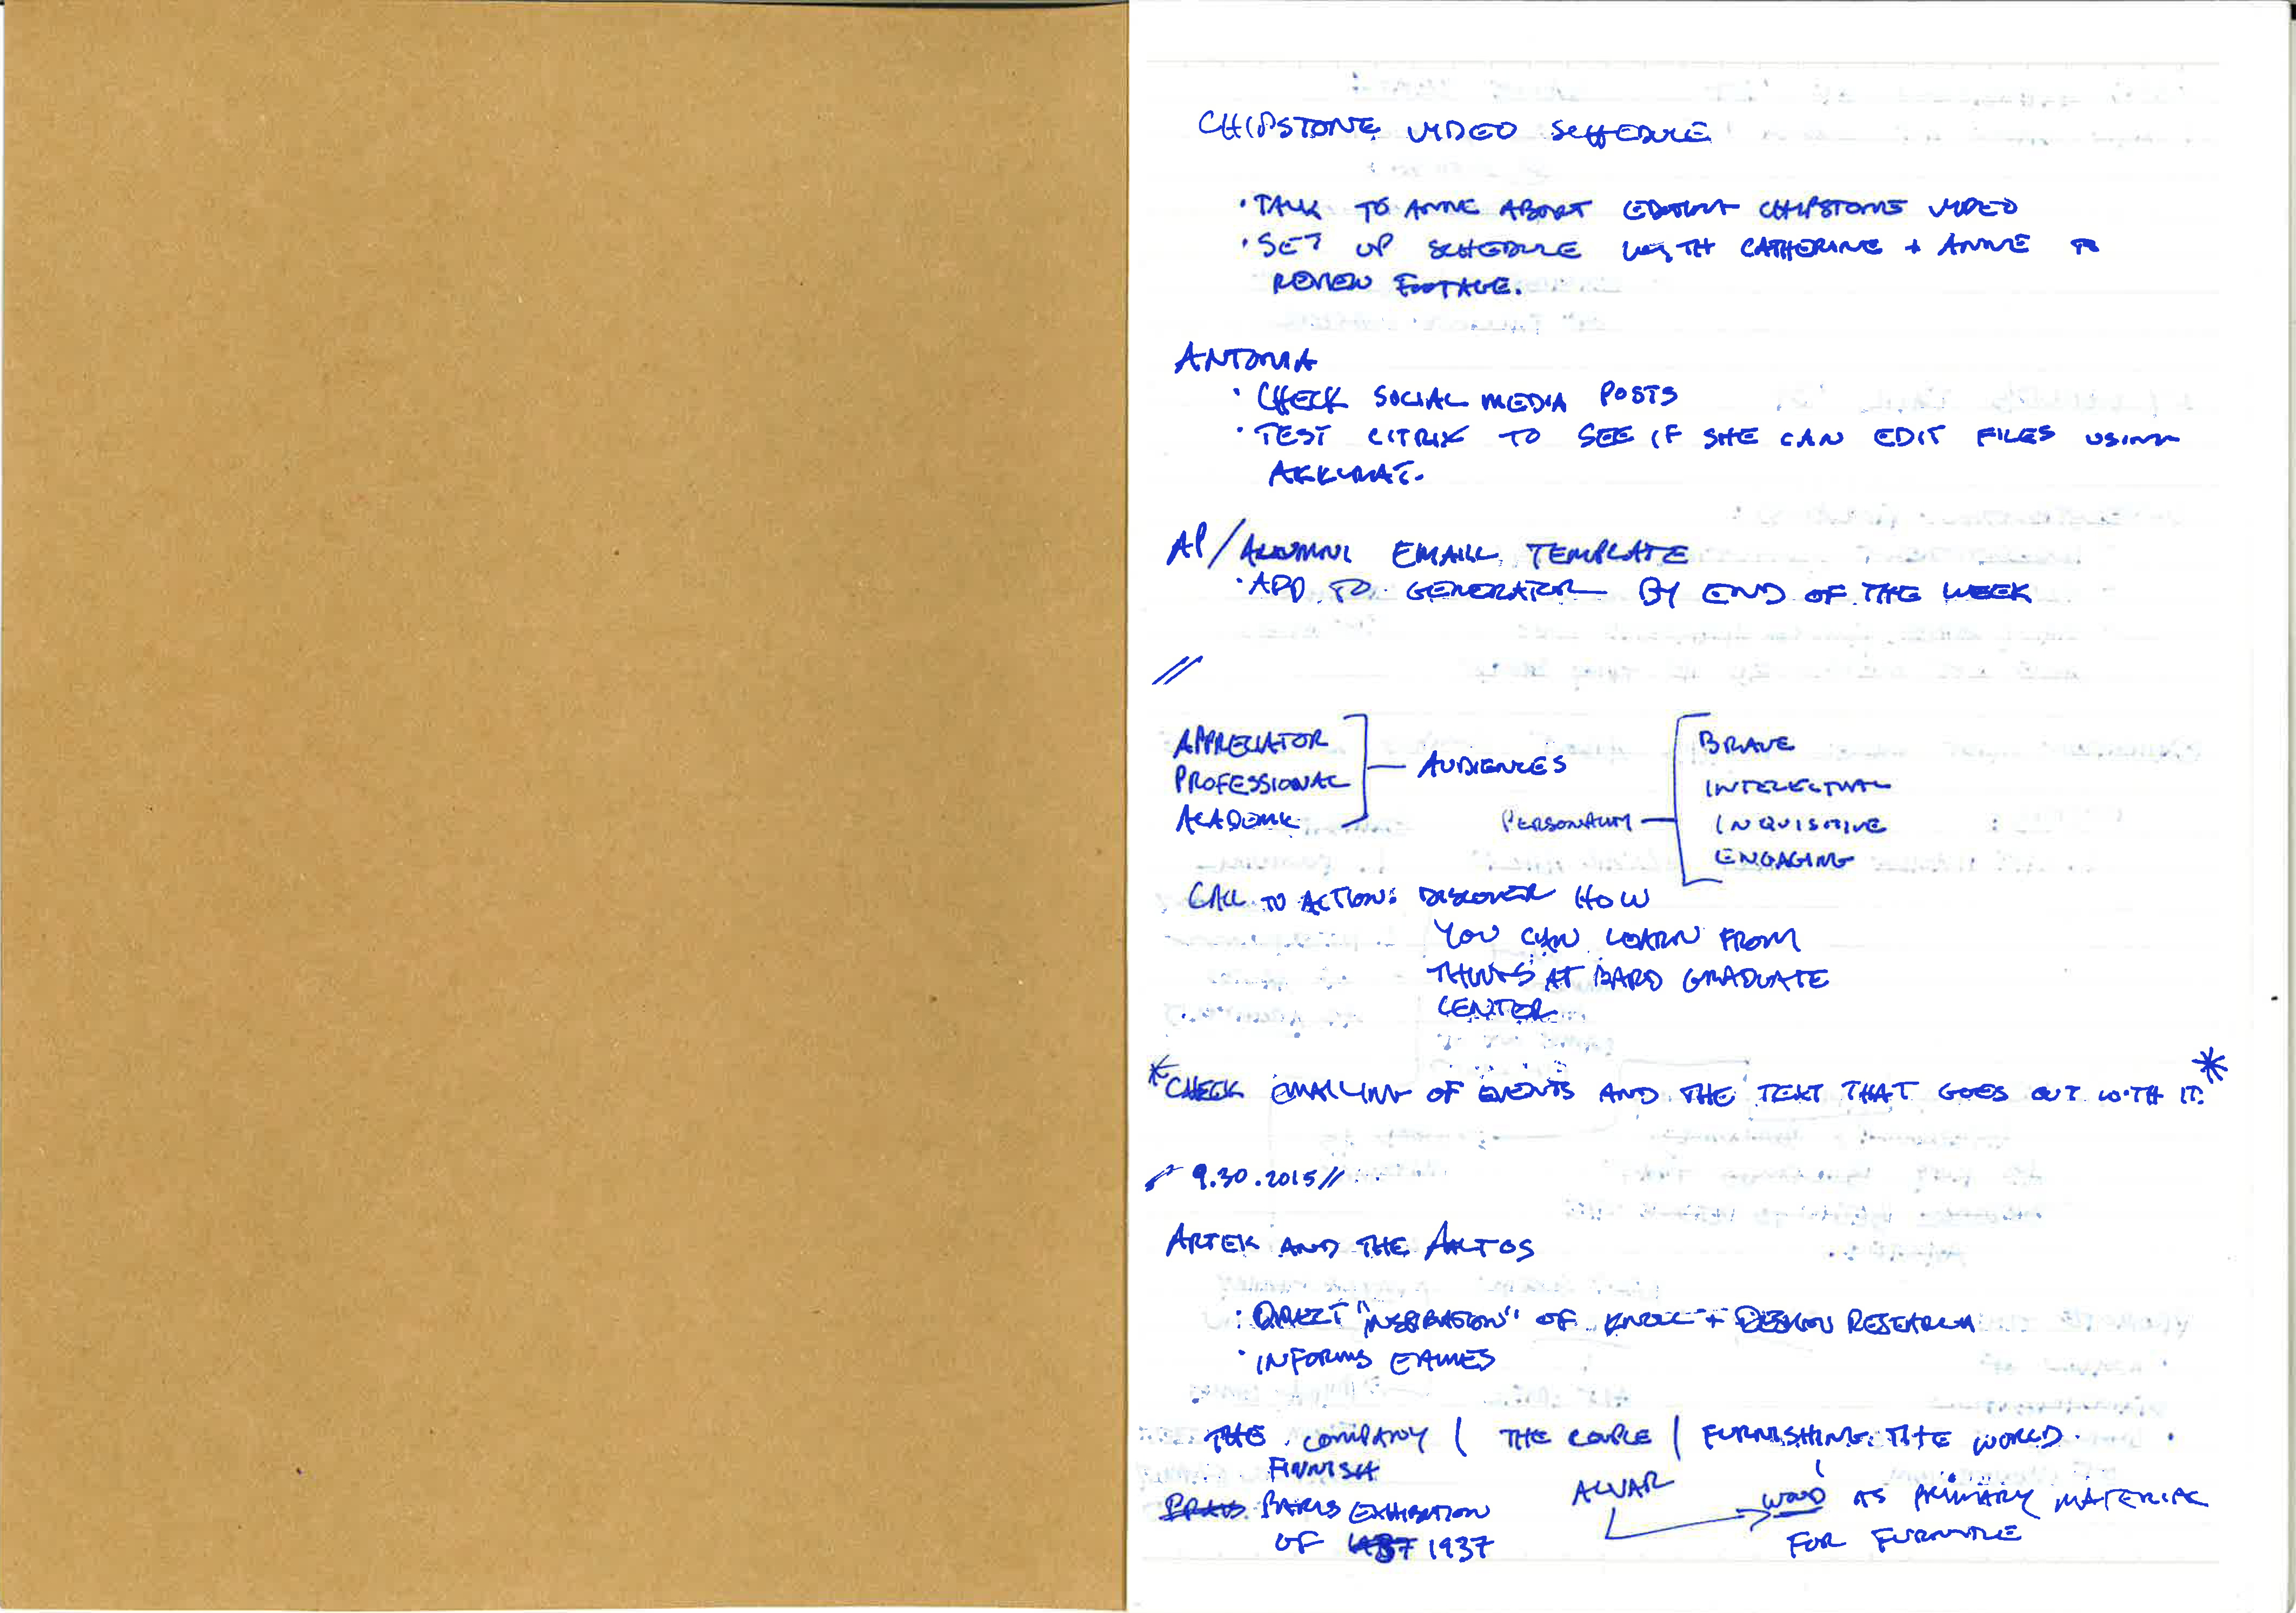 CHIPSTONE VIDEO SCHEDULE
· TALK TO ANNE ABOUT EDITING CHIPSTONE VIDEO
· SET UP SCHEDULE WITH CATHERINE + ANNE TO
REVIEW FOOTAGE.
ANTONIA
· CHECK SOCIAL MEDIA POSTS
· TEST CITRIX TO SEE IF SHE CAN EDIT FILES USING
AP/ALUMNI EMAIL TEMPLATE
· ADD TO GENERATOR BY END OF THE WEEK
//
APPRECIATOR
PROFESSIONAL
ACADEMIC
AUDIENCES
PERSONALITY
BRAVE
INTELECTUAL
INQUISITIVE
ENGAGING
CALL TO ACTION: DISCOVER HOW
YOU CAN LEARN FROM
THINGS AT BARD GRADUATE
CENTER
* CHECK EMAILING OF EVENTS AND THE TEXT THAT GOES OUT WITH IT. *
9.30.2015//
ARTEK AND THE AALTOS
· DIRECT "INSPIRATION" OF KNOLL + DESIGN RESEARCH
· INFORMS EAMES
THE COMPANY | THE COUPLE | FURNISHING THE WORLD
FINNISH
PARIS EXHIBITION
OF 1937
ALVAR
WOOD AS PRIMARY MATERIAL
FOR FURNITURE